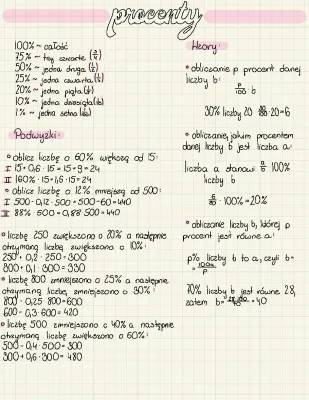 procenty
100% ~ całość
75% ~ trzy czwarte (3/4)
50% ~ jedna druga (1/2)
25% ~ jedna czwarta (1/4)
20% ~ jedna piąta (1/5)
10% ~ jedna dziesiąta (1/10)
1% ~ jedna setna (1/100)
Podwyżki:
• oblicz liczbę o 60% większą od 15:
I 15 + 0,6 · 15 = 15 + 9 = 24
II 160% · 15 = 1,6 · 15 = 24
• oblicz liczbę o 12% mniejszą od 500:
I 500 - 0,12 · 500 = 500 - 60 = 440
II 88% · 500 = 0,88 · 500 = 440
• liczbę 250 zwiększono o 20% a następnie
otrzymaną liczbę zwiększono o 10%:
250 + 0,2 · 250 = 300
300 + 0,1 · 300 = 330
• liczbę 800 zmniejszono o 25% a następnie
otrzymaną liczbę zmniejszono o 30%:
800 - 0,25 · 800 = 600
600 - 0,3 · 600 = 420
• liczbę 500 zmniejszono o 40% a następnie
otrzymaną liczbę zwiększono o 60%:
500 - 0,4 · 500 = 300
300 + 0,6 · 300 = 480
Wzory:
• obliczanie p procent danej
liczby b:
p/100 · b
30% liczby 20 · 20 = 6
• obliczanie, jakim procentem
danej liczby b jest liczba a:
liczba a stanowi a/b · 100%
liczby b
· 100% = 20%
• obliczanie liczby b, której p
procent jest równe a:
p% liczby b to a, czyli b =
= 100a/p
70% liczby b jest równe 28,
zatem b = = 40